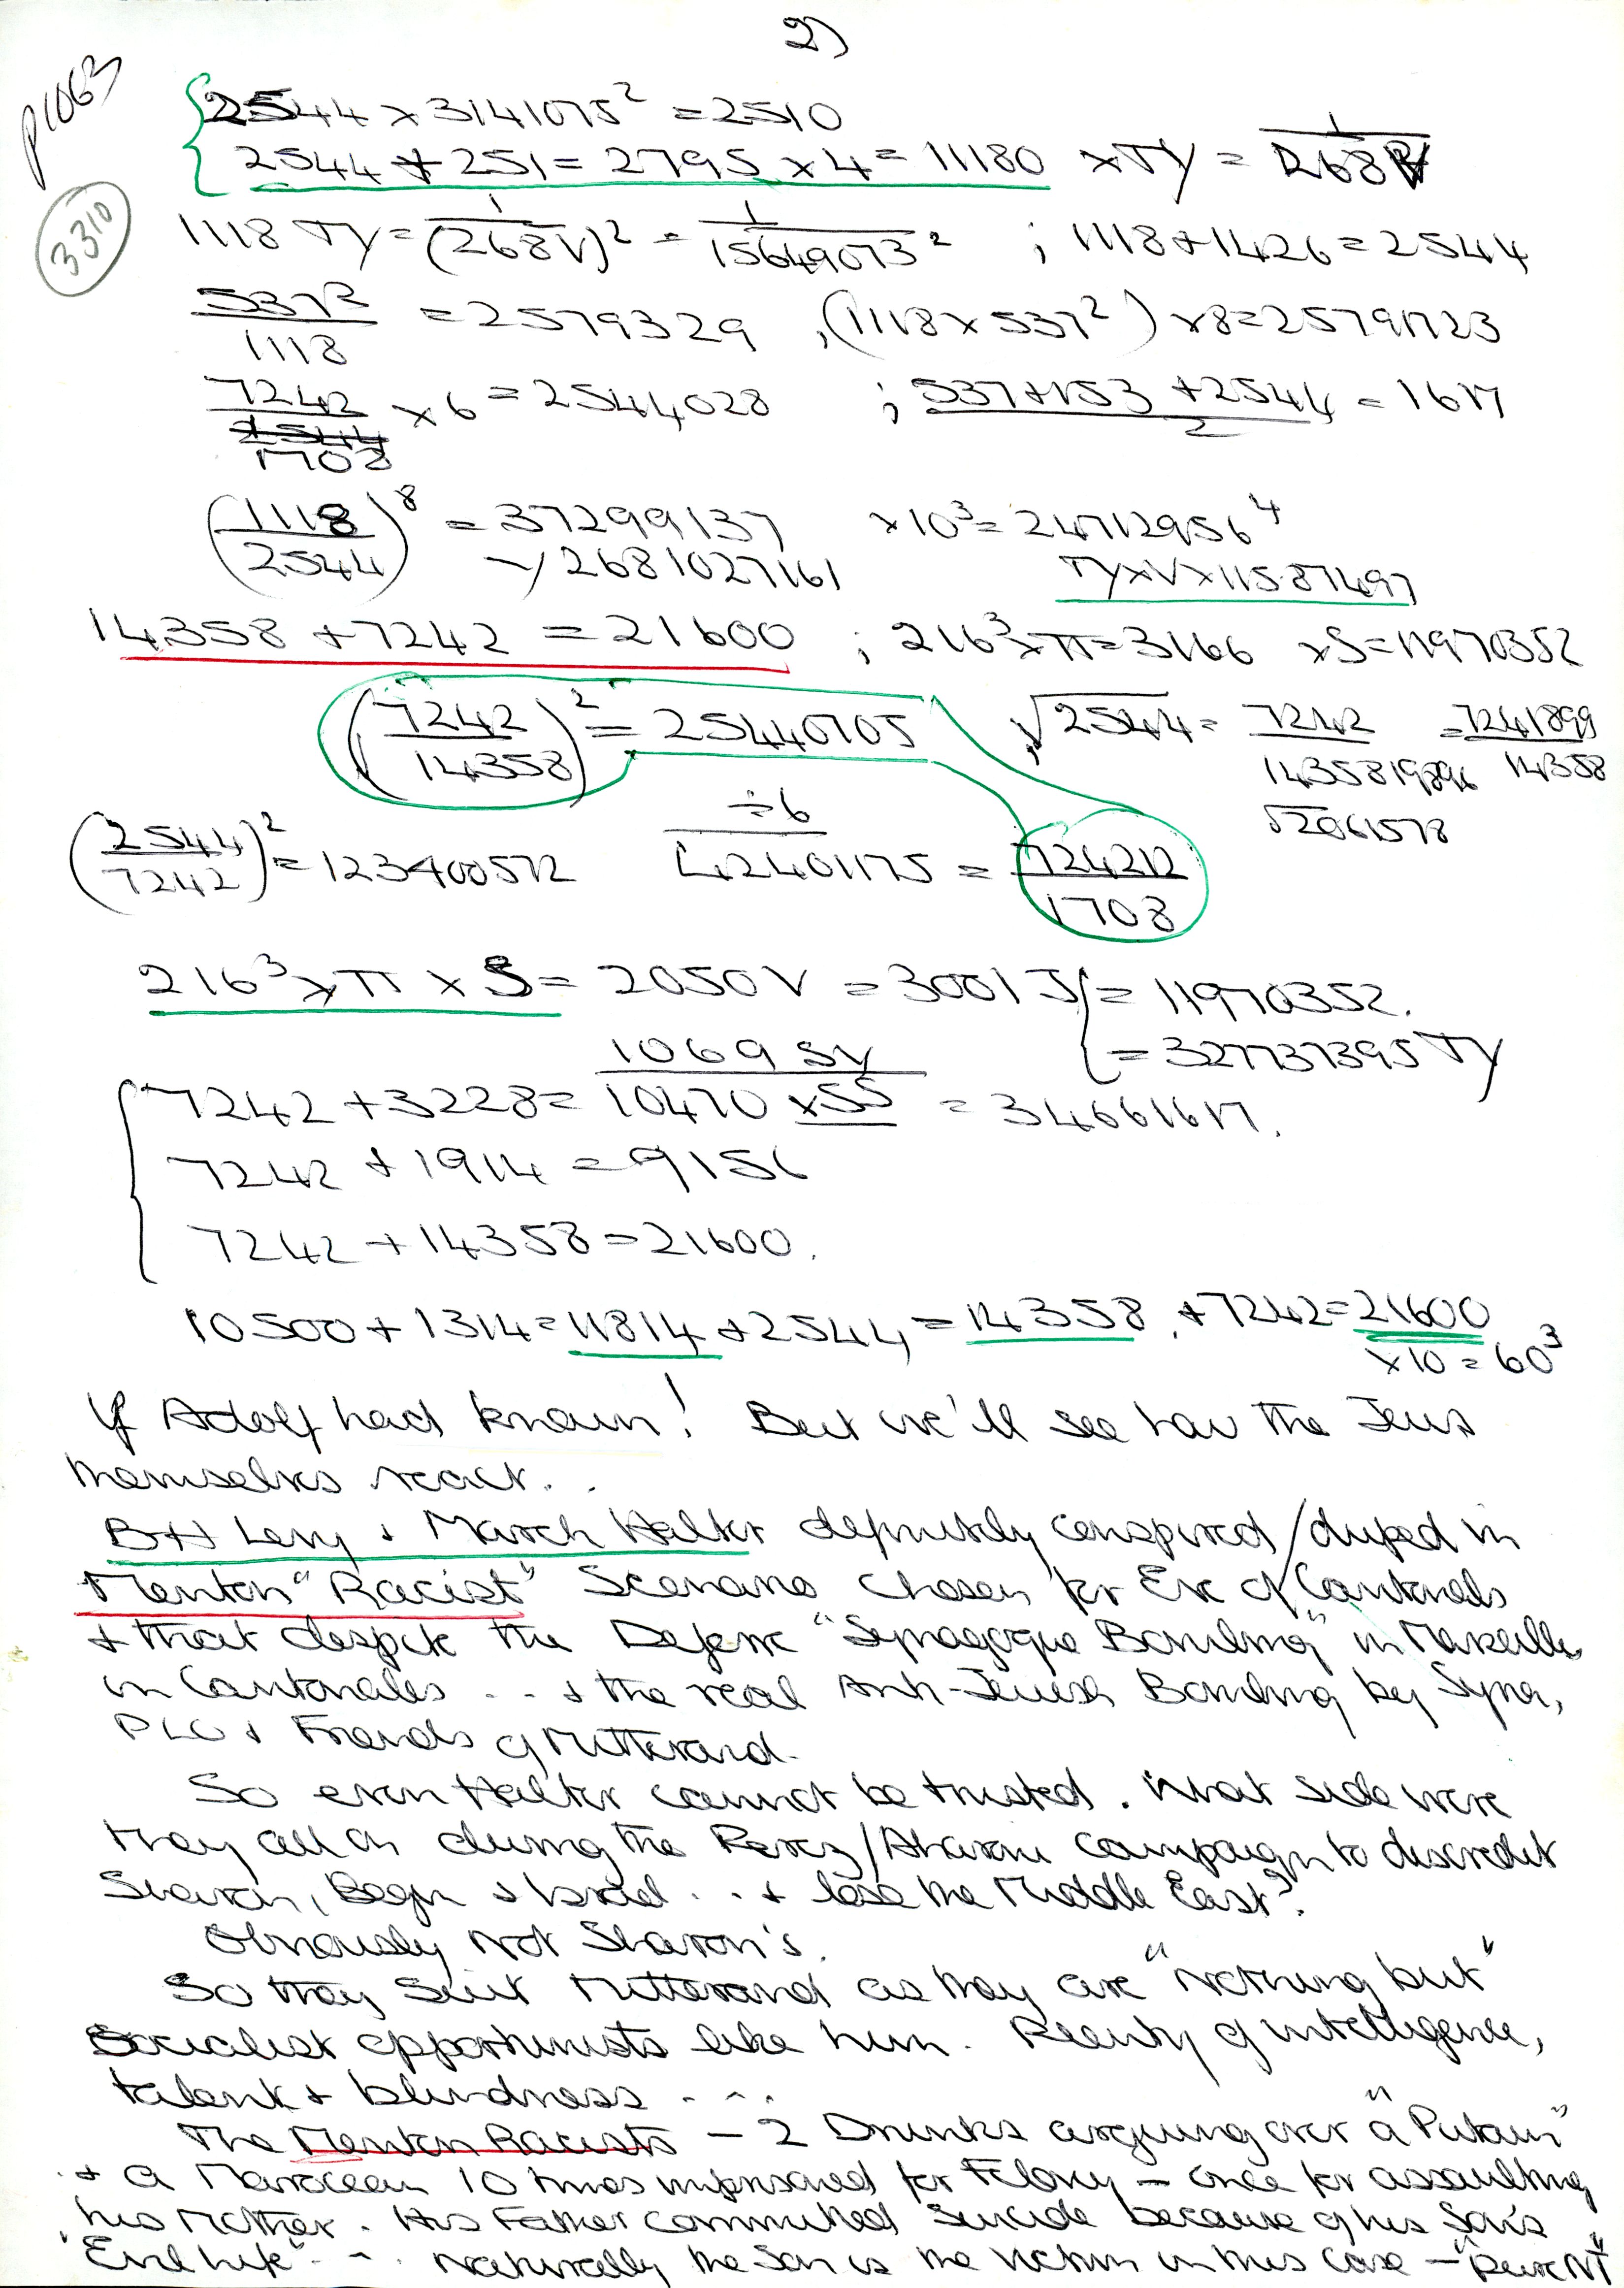 2)
P1063
3310
2544 × 3141075² = 2510
2544 + 251 = 2795 × 4 = 11180 × TY = 1/268V
1118 TY = 1/(268V)² = 1/15649073² ; 1118 + 1426 = 2544
537²/1118 = 2579329 , (1118 × 537²) × 8 = 25791723
7242/1708 × 6 = 2544028 ; 537 + 153 + 2544/2 = 1617
(1118/2544)⁸ = 37299137 × 10³ = 24712956⁴
→ 2681027161 TY × V × 115.87497
14358 + 7242 = 21600 ; 216³ × π = 3166 × S = 11970352
(7242/14358)² = 25440705 , √2544 = 7242/1435819896 = 7241899/14358
√2061578
(2544/7242)² = 123400572 ÷ 6 42401175 = 724212/1708
216³ × π × S = 2050 V = 3001 J = 11970352.
= 327737395 TY
1069 SY
7242 + 3228 = 10470 × 55 = 34661617.
7242 + 1914 = 9156
7242 + 14358 = 21600.
10500 + 1314 = 11814 + 2544 = 14358 , + 7242 = 21600
× 10 = 60³
If Adolf had known! But we'll see how the Jews
themselves react. .
BH Levy & March Halter definitely conspired/duped in
Menton "Racist" Scenario chosen for Eve of Cantonals
+ that despite the Deferre "Synagogue Bombing" in Marseille
in Cantonales . . + the real Anti-Jewish Bombing by Syria,
PLO + Friends of Mitterand.
So even Halter cannot be trusted. What side were
they all on during the Perez/Aharoni campaign to discredit
Sharon, Begin & Israel . . + lose the Middle East?
Obviously not Sharon's.
So they suit Mitterand as they are "nothing but"
Socialist opportunists like him. Plenty of intelligence,
talent + blindness . . .
The Menton Racists — 2 Drunks arguing over "a Putain"
+ a Maroccan 10 times imprisoned for Felony — once for assaulting
his Mother. His Father committed suicide because of his Son's
"Evil life" . . . Naturally the Son is the victim in this case —